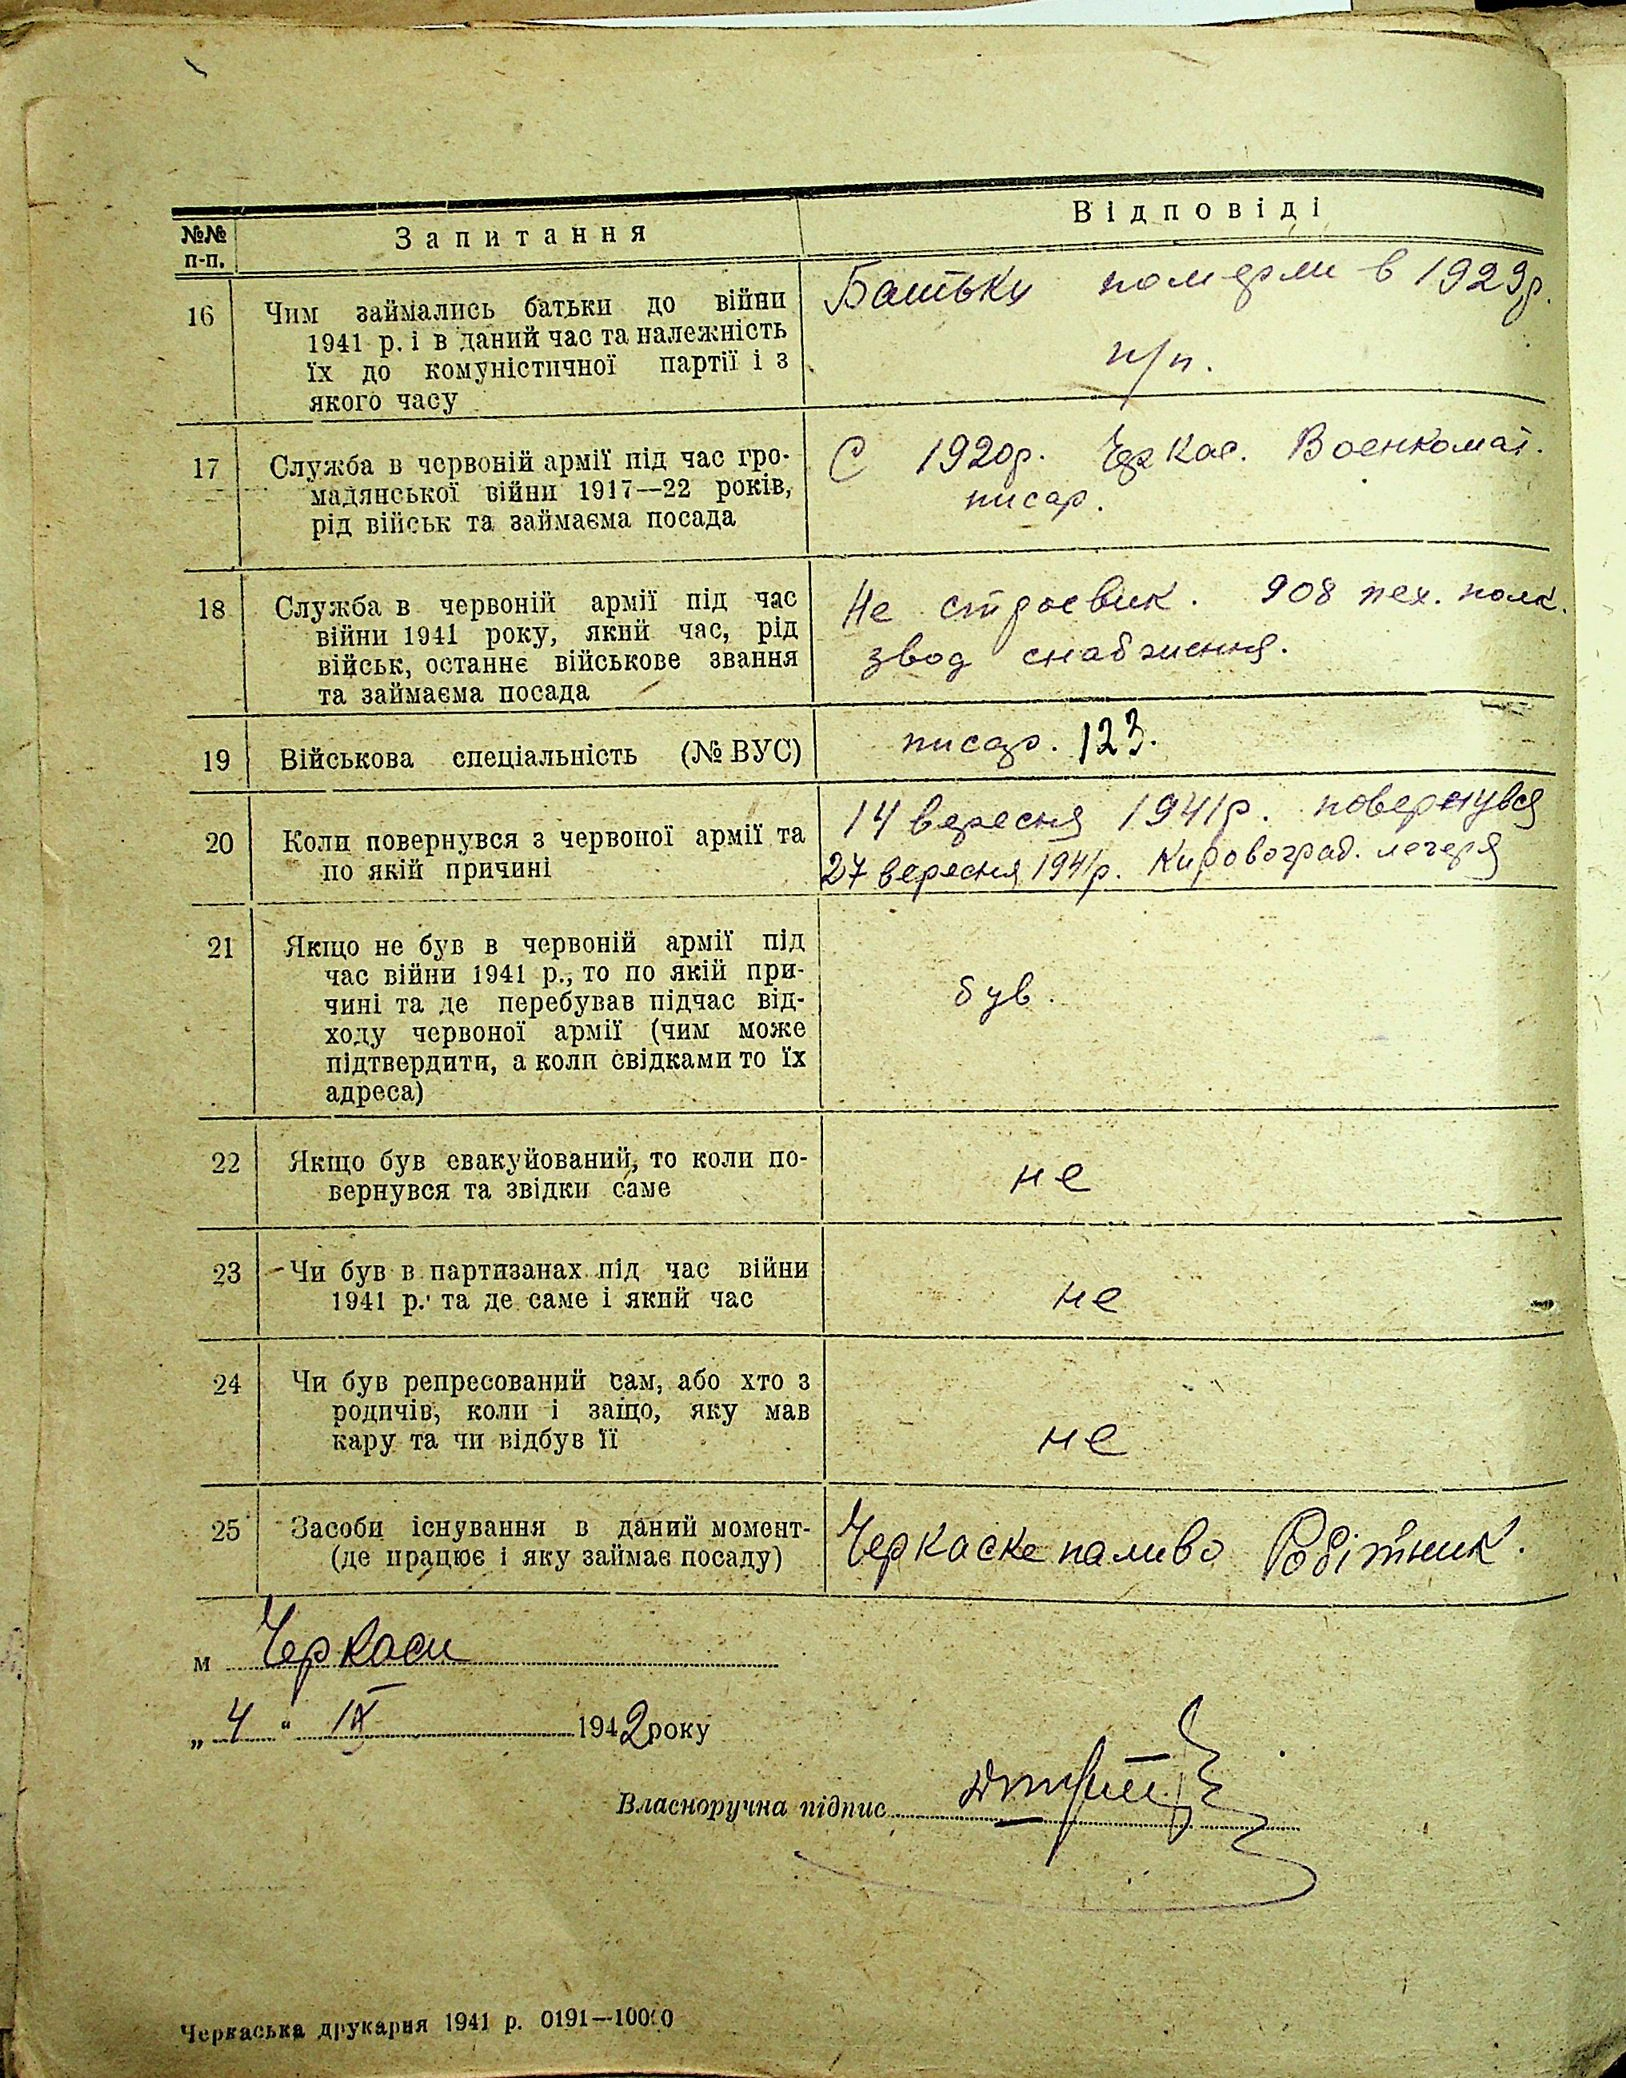 №№ п-п.
Запитання
Відповіді
16
Чим займались батьки до війни
1941 р. і в даний час та належність
їх до комуністичної партії і з
якого часу
Батьки померли в 1929р.
п/п.
17
Служба в червоній армії під час гро-
мадянської війни 1917—22 років,
рід військ та займаєма посада
С 1920р. Черкас. Военкомат.
писар.
18
Служба в червоній армії під час
війни 1941 року, який час, рід
військ, останнє військове звання
та займаєма посада
Не строевик. 908 пех. полк.
звод снабження.
19
Військова спеціальність (№ ВУС)
писар. 123.
20
Коли повернувся з червоної армії та
по якій причині
14 вересня 1941р. повернувся
27 вересня 1941р. Кировоград.
21
Якщо не був в червоній армії під
час війни 1941 р., то по якій при-
чині та де перебував підчас від-
ходу червоної армії (чим може
підтвердити, а коли свідками то їх
адреса)
був.
22
Якщо був евакуйований, то коли по-
вернувся та звідки саме
не
23
Чи був в партизанах під час війни
1941 р. та де саме і який час
не
24
Чи був репресований сам, або хто з
родичів, коли і защо, яку мав
кару та чи відбув її
не
25
Засоби існування в даний момент-
(де працює і яку займає посаду)
Черкаске паливо Робітник.
м Черкаси
„ 4 “ IX 1942 року
Власноручна підпис
Черкаська друкарня 1941 р. 0191—10000